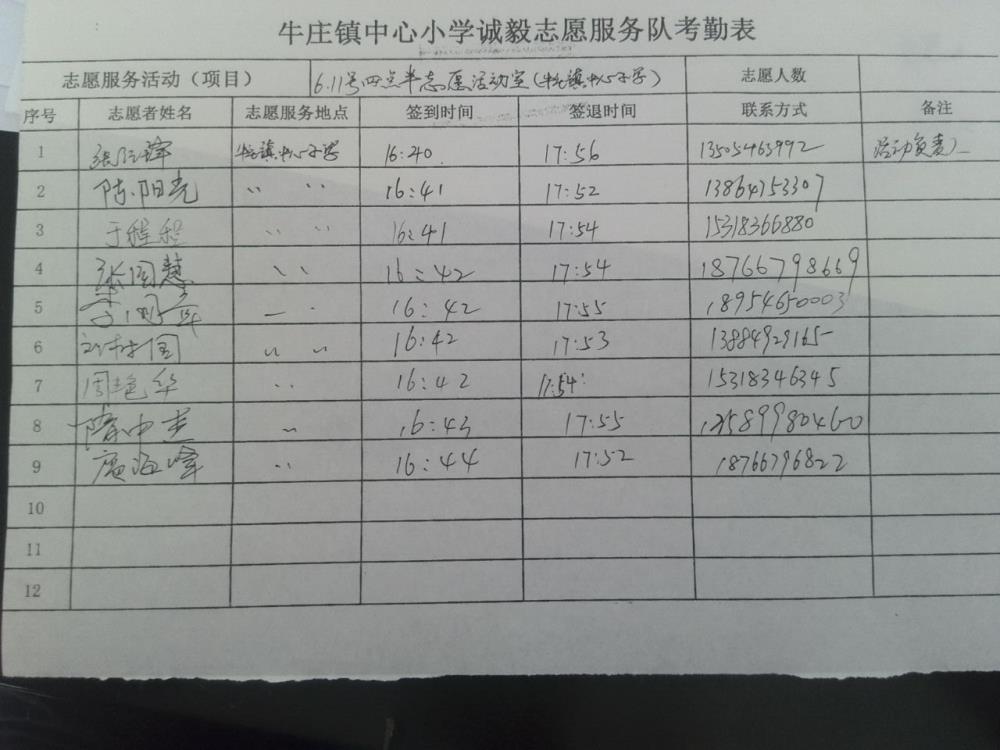 牛庄镇中心小学诚毅志愿服务队考勤表
志愿服务活动（项目） 6.11号四点半志愿活动室（牛庄镇中心小学） 志愿人数
序号 志愿者姓名 志愿服务地点 签到时间 签退时间 联系方式 备注
1 牛庄镇中心小学 16:40 17:56 13505465992 活动负责人
2 陈阳光 〃 〃 16:41 17:52 13864753307
3 于程程 〃 〃 16:41 17:54 15318366880
4 张国慧 〃 〃 16:42 17:54 18766798669
5 16:42 17:55 18954650003
6 〃 〃 16:42 17:53 13884929165
7 周艳华 〃 16:42 17:54 15318346345
8 隋中杰 〃 16:43 17:55
9 〃 16:44 17:52 18766796822
10
11
12